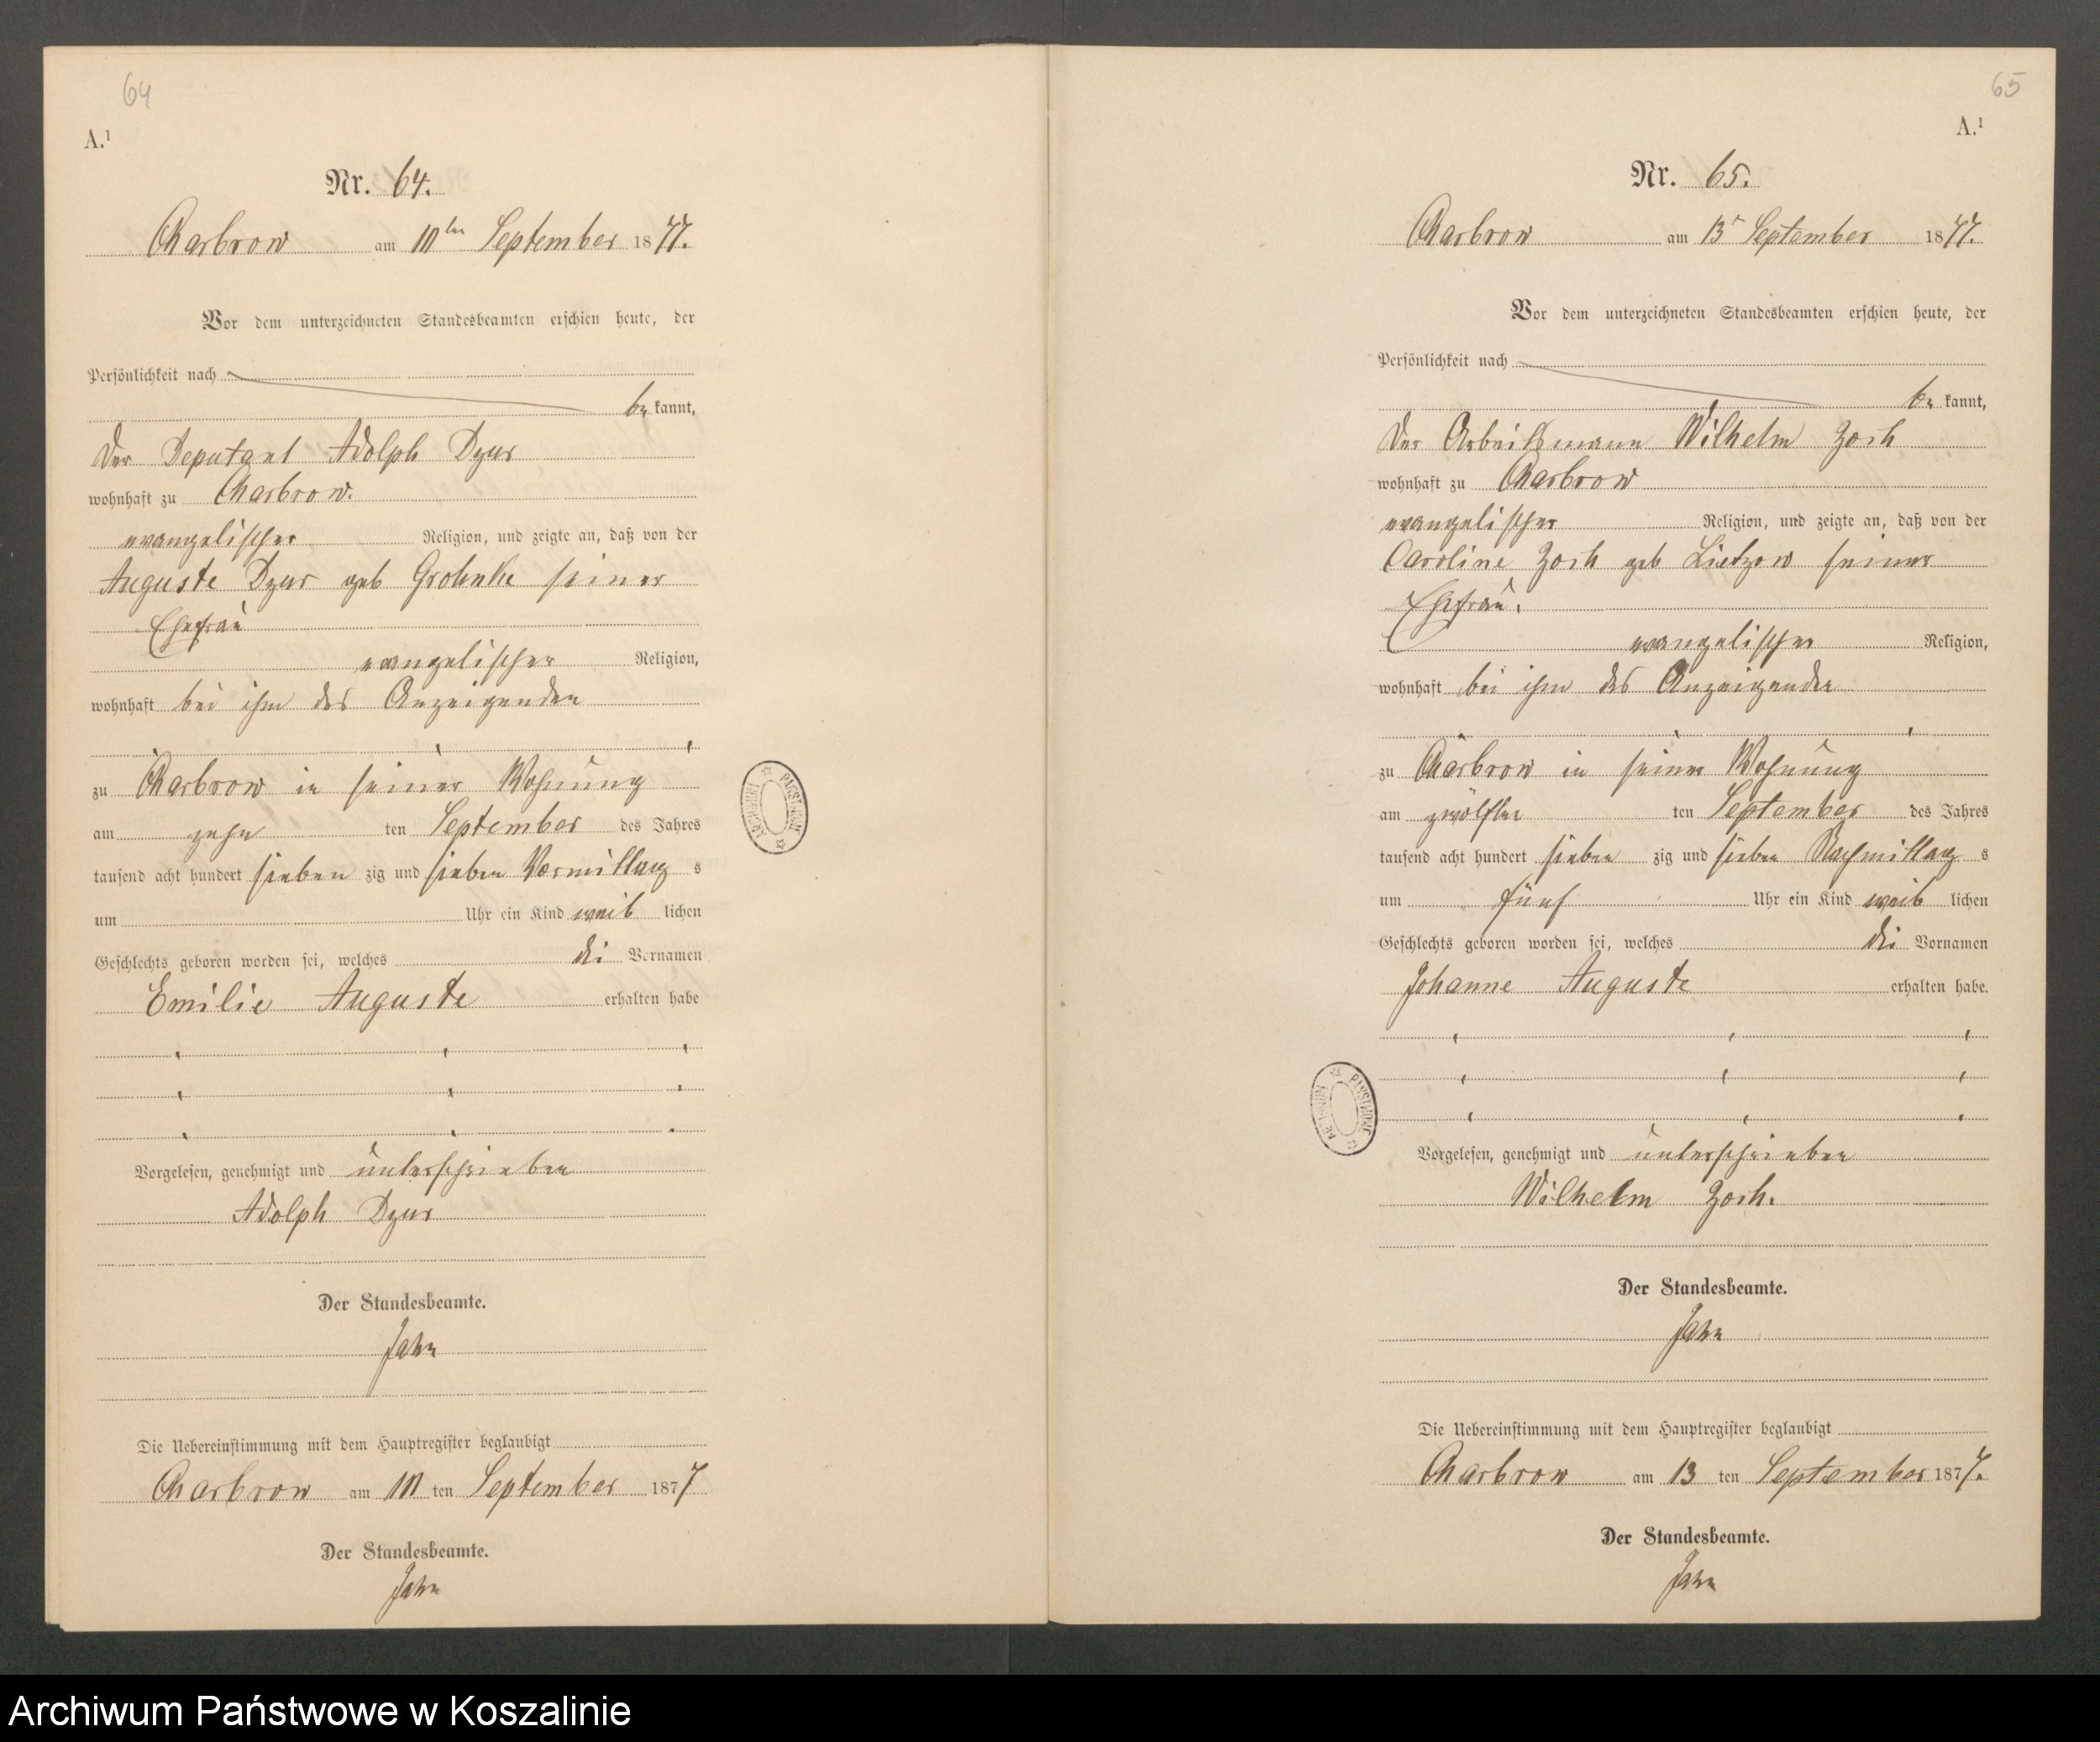 64
A.¹
Nr. 64.
Charbrow am 10ten September 1877.
Vor dem unterzeichneten Standesbeamten erschien heute, der
Persönlichkeit nach
be kannt,
der Deputant Adolph Dzur
wohnhaft zu Charbrow.
evangelischer Religion, und zeigte an, daß von der
Auguste Dzur geb Grohnke seiner
Ehefrau
evangelischer Religion,
wohnhaft bei ihm des Anzeigenden
zu Charbrow in seiner Wohnung
am zehn ten September des Jahres
tausend acht hundert sieben zig und sieben Vormittag s
um Uhr ein Kind weib lichen
Geschlechts geboren worden sei, welches die Vornamen
Emilie Auguste erhalten habe
Vorgelesen, genehmigt und unterschrieben
Adolph Dzur
Der Standesbeamte.
Jahn
Die Uebereinstimmung mit dem Hauptregister beglaubigt
Charbrow am 10 ten September 1877
Der Standesbeamte.
Jahn
65
A.¹
Nr. 65.
Charbrow am 13 September 1877.
Vor dem unterzeichneten Standesbeamten erschien heute, der
Persönlichkeit nach
be kannt,
der Arbeitsmann Wilhelm Zoch
wohnhaft zu Charbrow
evangelischer Religion, und zeigte an, daß von der
Caroline Zoch geb Lietzow seiner
Ehefrau.
evangelischer Religion,
wohnhaft bei ihm des Anzeigenden
zu Charbrow in seiner Wohnung
am zwölften ten September des Jahres
tausend acht hundert sieben zig und sieben Nachmittag s
um fünf Uhr ein Kind weib lichen
Geschlechts geboren worden sei, welches die Vornamen
Johanne Auguste erhalten habe.
Vorgelesen, genehmigt und unterschrieben
Wilhelm Zoch.
Der Standesbeamte.
Jahn
Die Uebereinstimmung mit dem Hauptregister beglaubigt
Charbrow am 13 ten September 1877.
Der Standesbeamte.
Jahn
Archiwum Państwowe w Koszalinie